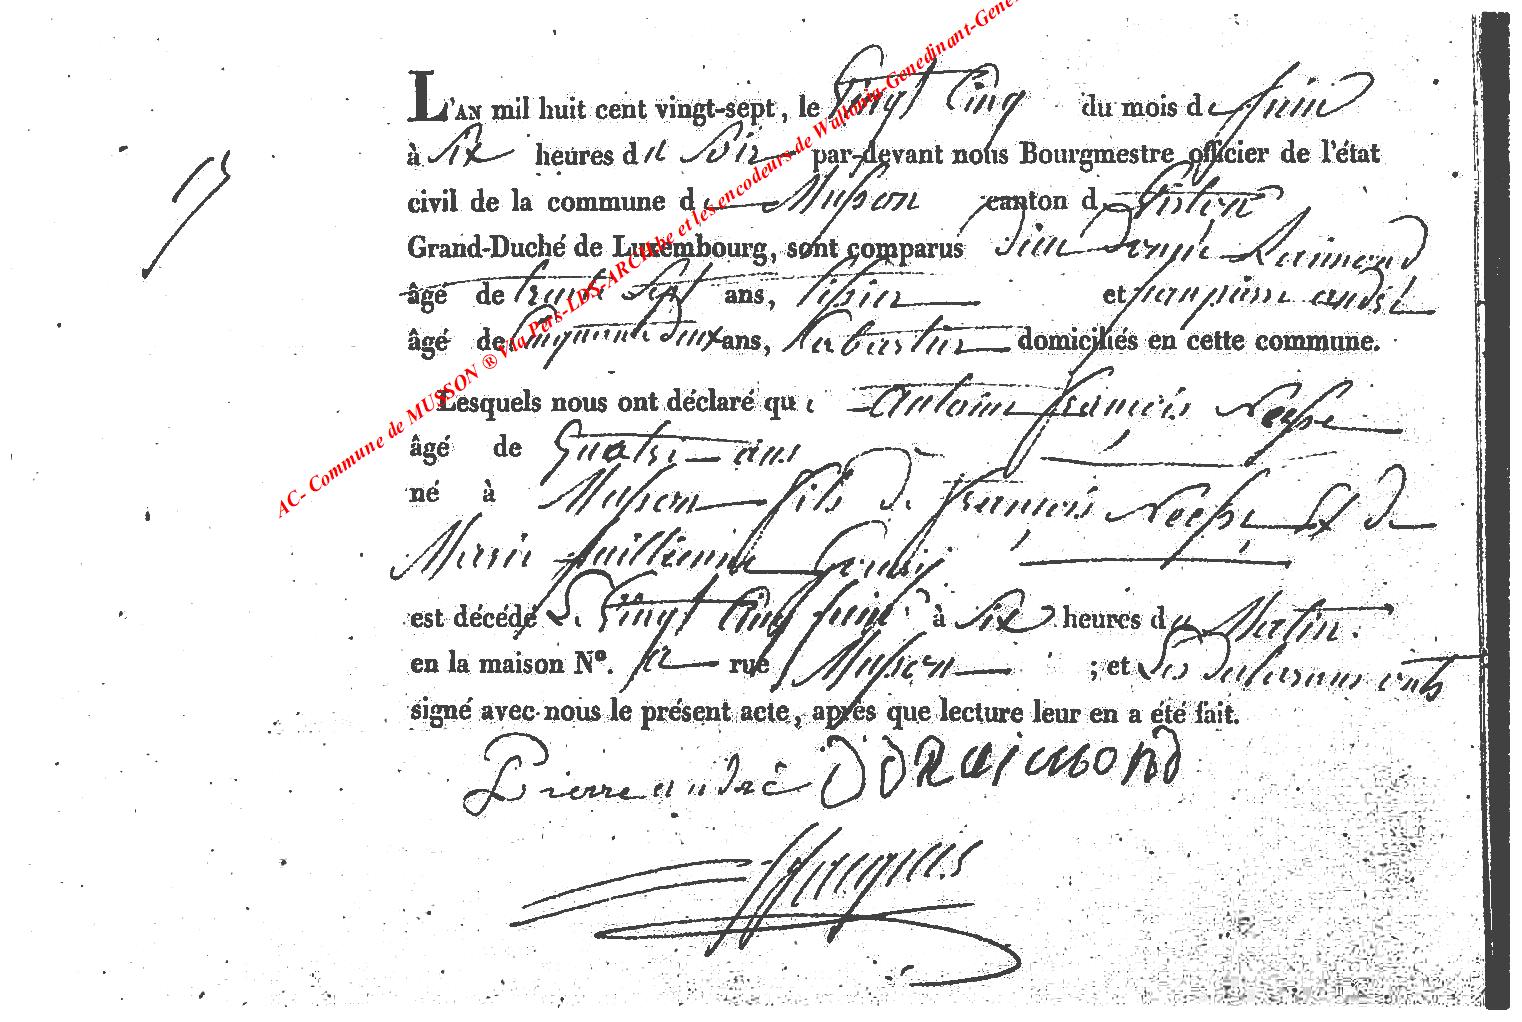 L'AN mil huit cent vingt-sept, le Vingt Cinq du mois de Juin
à Six heures du Soir par-devant nous Bourgmestre officier de l'état
civil de la commune de Musson canton de Virton
Grand-Duché de Luxembourg, sont comparus Raimond
âgé de trente Sept ans, et jean pierre andré
âgé de Cinquante deux ans, domiciliés en cette commune.
Lesquels nous ont déclaré que Antoine françois
âgé de Quatre ans
né à Musson fils de françois Et de
Marie
est décédé Le Vingt Cinq Juin à Six heures du Matin
en la maison Nº. rue Musson ; et Les Declarans ont
signé avec nous le présent acte, après que lecture leur en a été fait.
Pierre andré DD RAIMOND
AC- Commune de MUSSON ® Via Pers-LDS-ARCH.be et les encodeurs de Wallonia-Genedinant-Gene